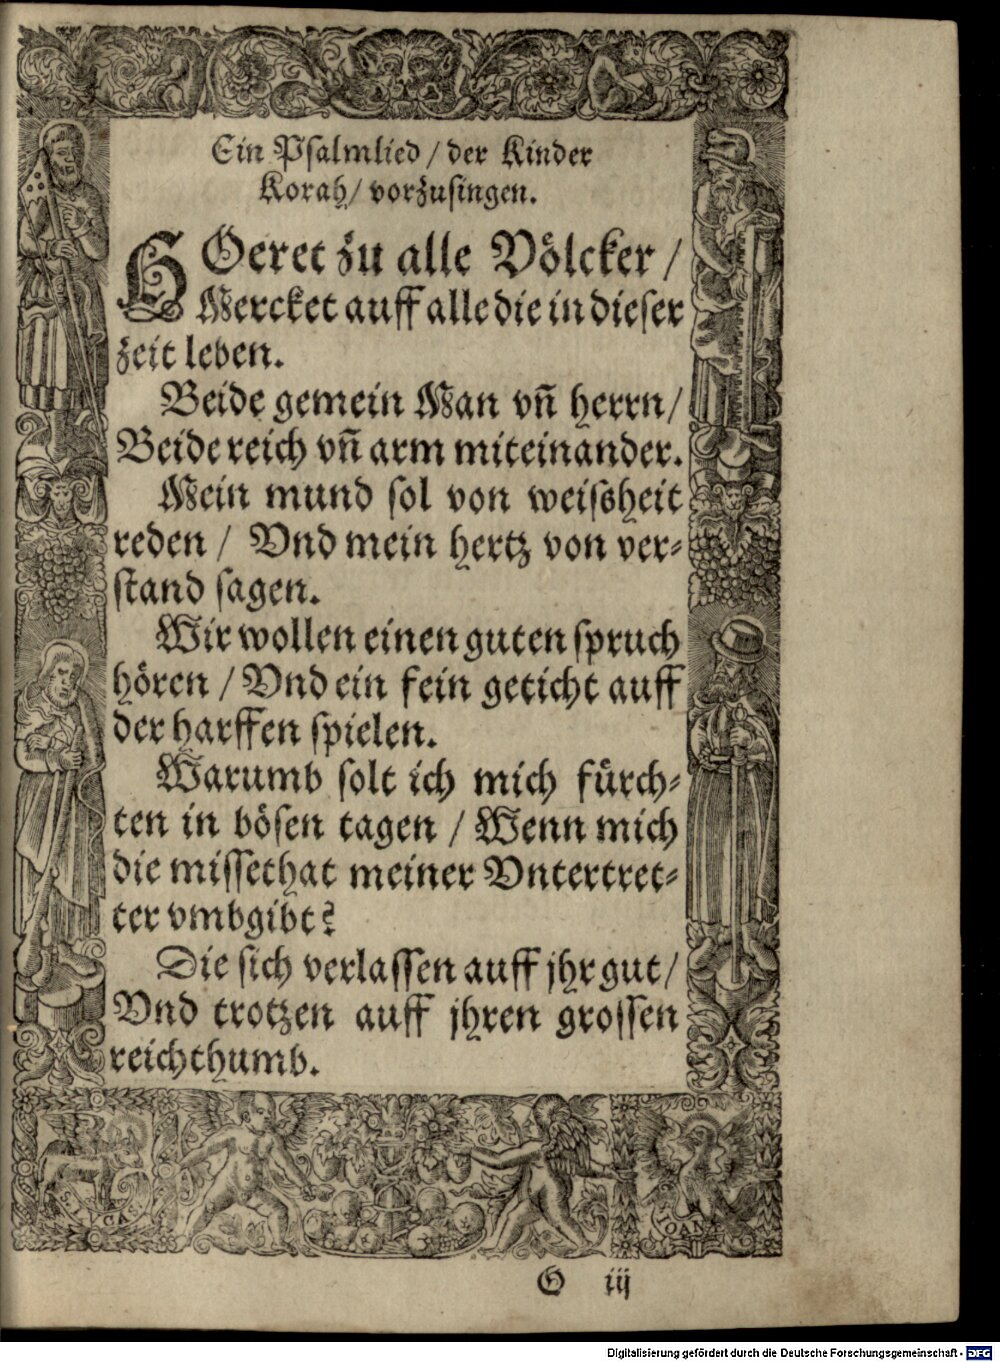 Ein Psalmlied / der Kinder
Korah / vorzusingen.
HOeret zu alle Völcker /
Mercket auff alle die in dieser
zeit leben.
Beide gemein Man vn̄ herrn /
Beide reich vn̄ arm miteinander.
Mein mund sol von weisßheit
reden / Vnd mein hertz von ver-
stand sagen.
Wir wollen einen guten spruch
hören / Vnd ein fein geticht auff
der harffen spielen.
Warumb solt ich mich fürch-
ten in bösen tagen / Wenn mich
die missethat meiner Vntertret-
ter vmbgibt?
Die sich verlassen auff jhr gut /
Vnd trotzen auff jhren grossen
reichthumb.
S. LVCAS
IOAN
G iij
Digitalisierung gefördert durch die Deutsche Forschungsgemeinschaft - DFG